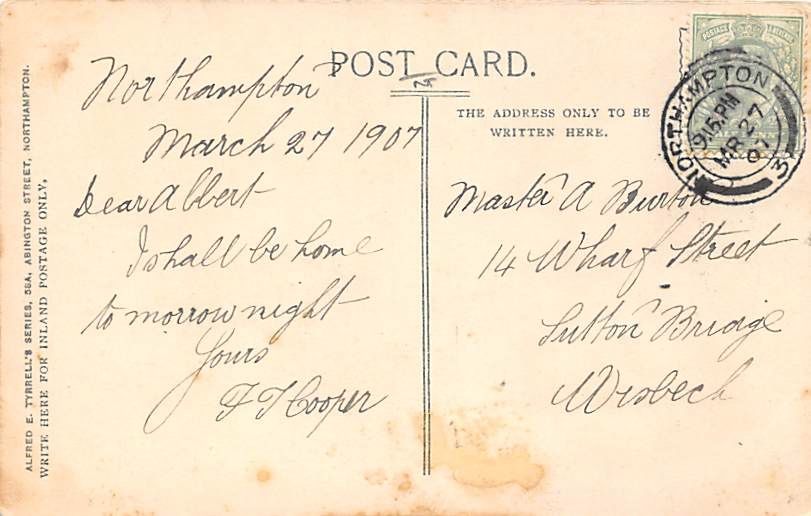 POST CARD.
THE ADDRESS ONLY TO BE
WRITTEN HERE.
ALFRED E. TYRRELL'S SERIES, 58A, ABINGTON STREET, NORTHAMPTON.
WRITE HERE FOR INLAND POSTAGE ONLY,
Northampton
March 27 1907
Dear Albert
I shall be home
to morrow night
Yours
F J Cooper
Master A Burton
14 Wharf Street
Sutton Bridge
Wisbech
POSTAGE
NORTHAMPTON
9.15 PM
MR 27
07
3